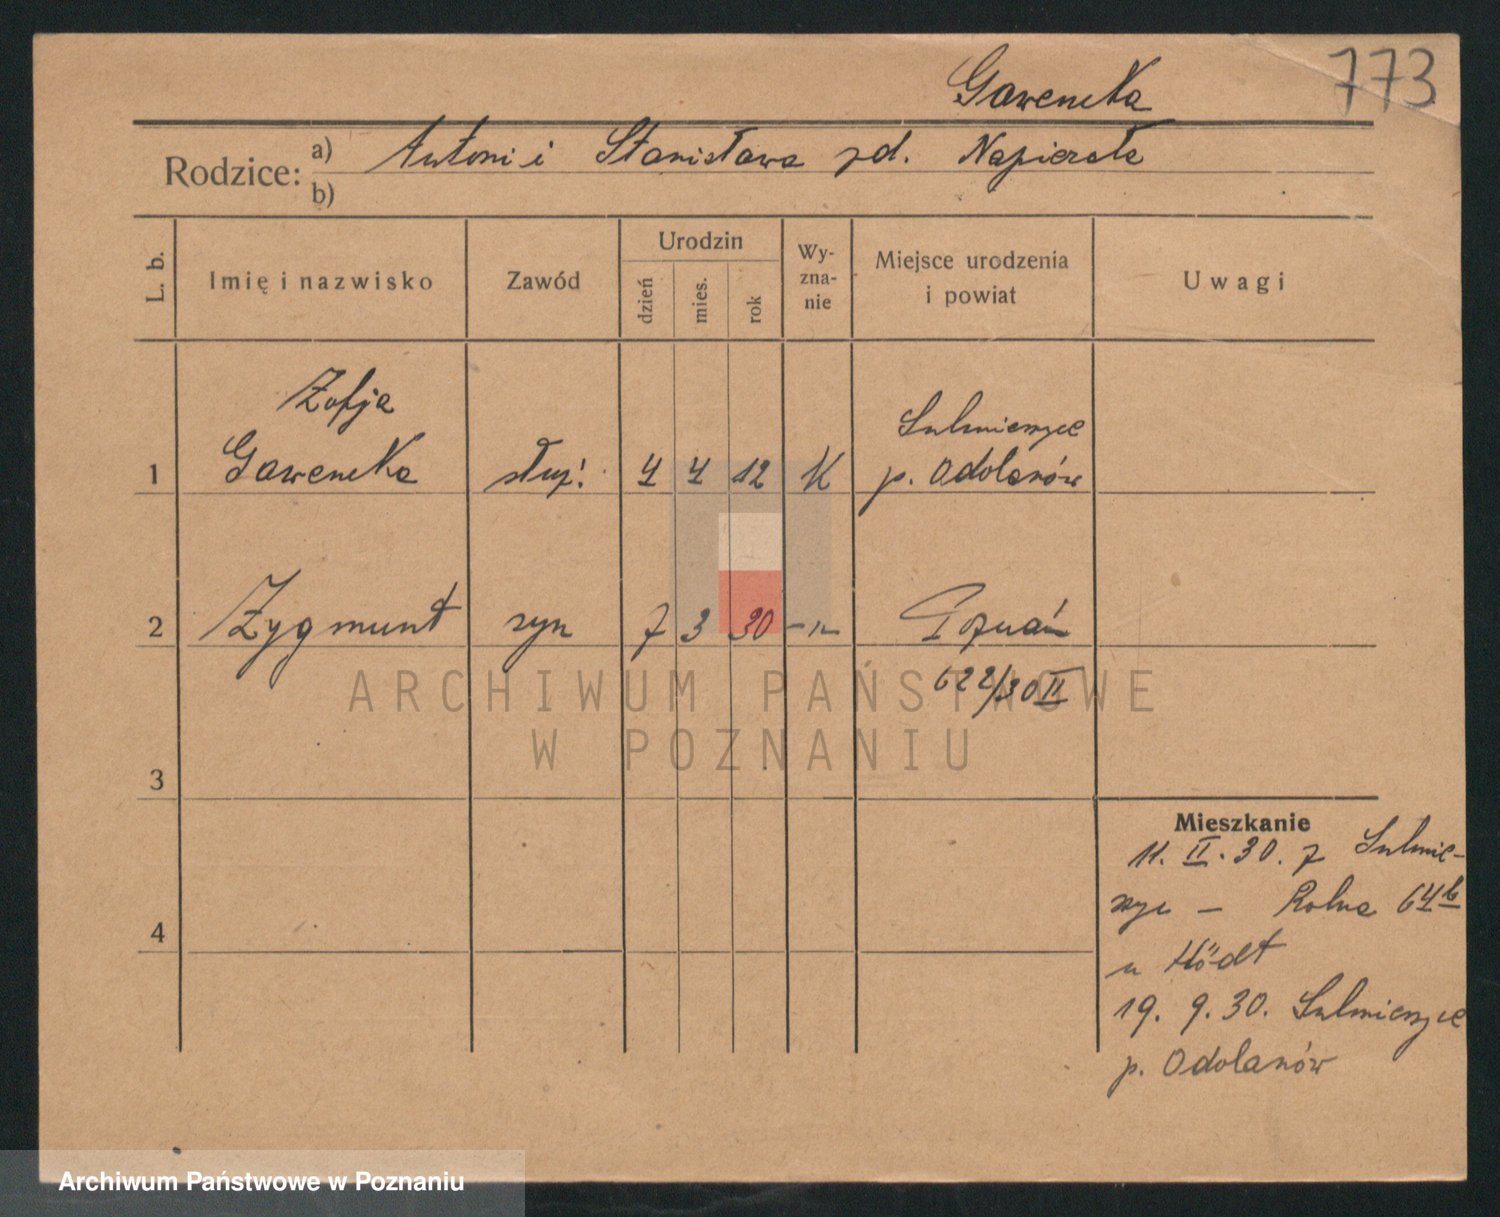 Gawencka
773
Rodzice: a) Antoni i Stanisława zd. Napierała
b)
L. b.
Imię i nazwisko
Zawód
Urodzin
dzień
mies.
rok
Wy-
zna-
nie
Miejsce urodzenia
i powiat
Uwagi
Zofja
Sulmierzyce
1 Gawencka służ. 4 4 12 K p. Odolanów
2 Zygmunt syn 7 3 30 -"- Poznań
622/30 II
ARCHIWUM PAŃSTWOWE
W POZNANIU
3
4
Mieszkanie
11. II. 30. z Sulmie-
rzyc – Rolna 64b
u Hödt
19. 9. 30. Sulmierzyce
p. Odolanów
Archiwum Państwowe w Poznaniu